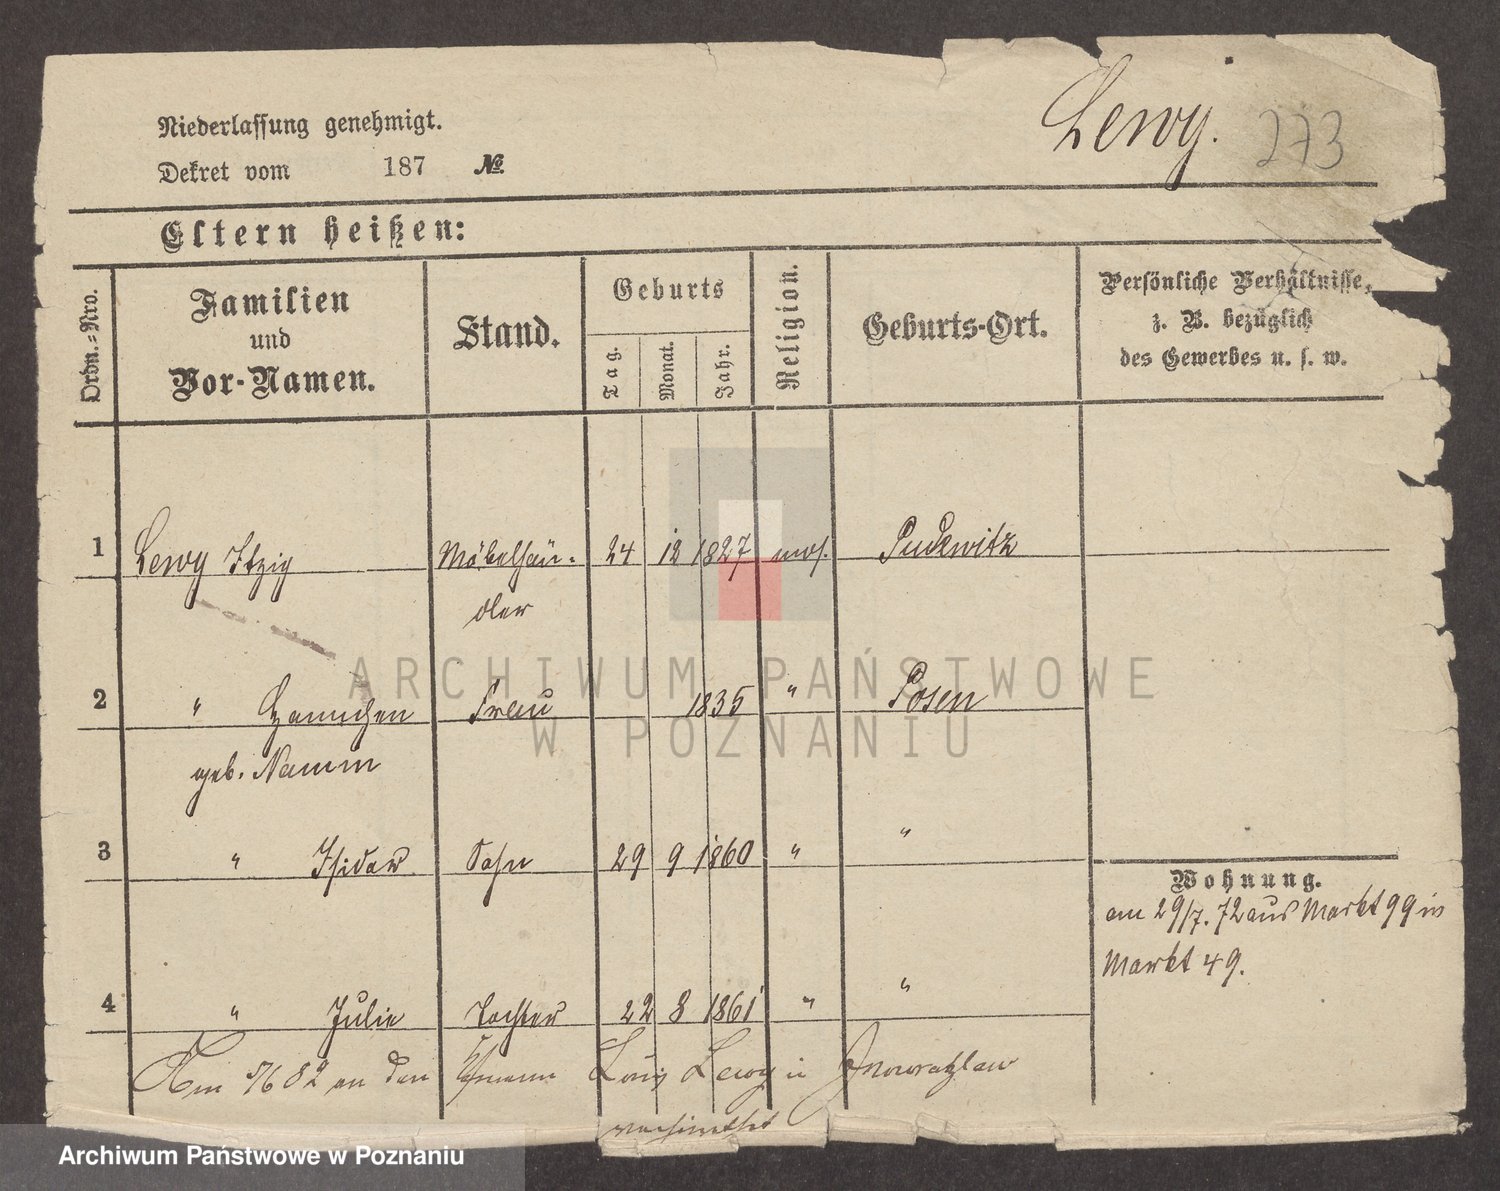 Lewy. 273
Niederlassung genehmigt.
Dekret vom 187 №
Eltern heißen:
Ordn.-Nro.
Familien und Vor-Namen.
Stand.
Geburts
Tag. Monat. Jahr.
Religion.
Geburts-Ort.
Persönliche Verhältnisse,
z. B. bezüglich
des Gewerbes u. s. w.
1 Lewy Itzig Möbelhän- 24 12 1827 mos. Pudewitz
dler
2 " Hannchen Frau 1835 " Posen
geb. Namm
3 " Isidor Sohn 29 9 1860 " "
Wohnung.
am 29/7. 72 aus Markt 99 in
Markt 49.
4 " Julie Tochter 22 8 1861 " "
Am 5/6 82 an den Louis Lewy in Inowrazlaw
verheirathet
ARCHIWUM PAŃSTWOWE
W POZNANIU
Archiwum Państwowe w Poznaniu